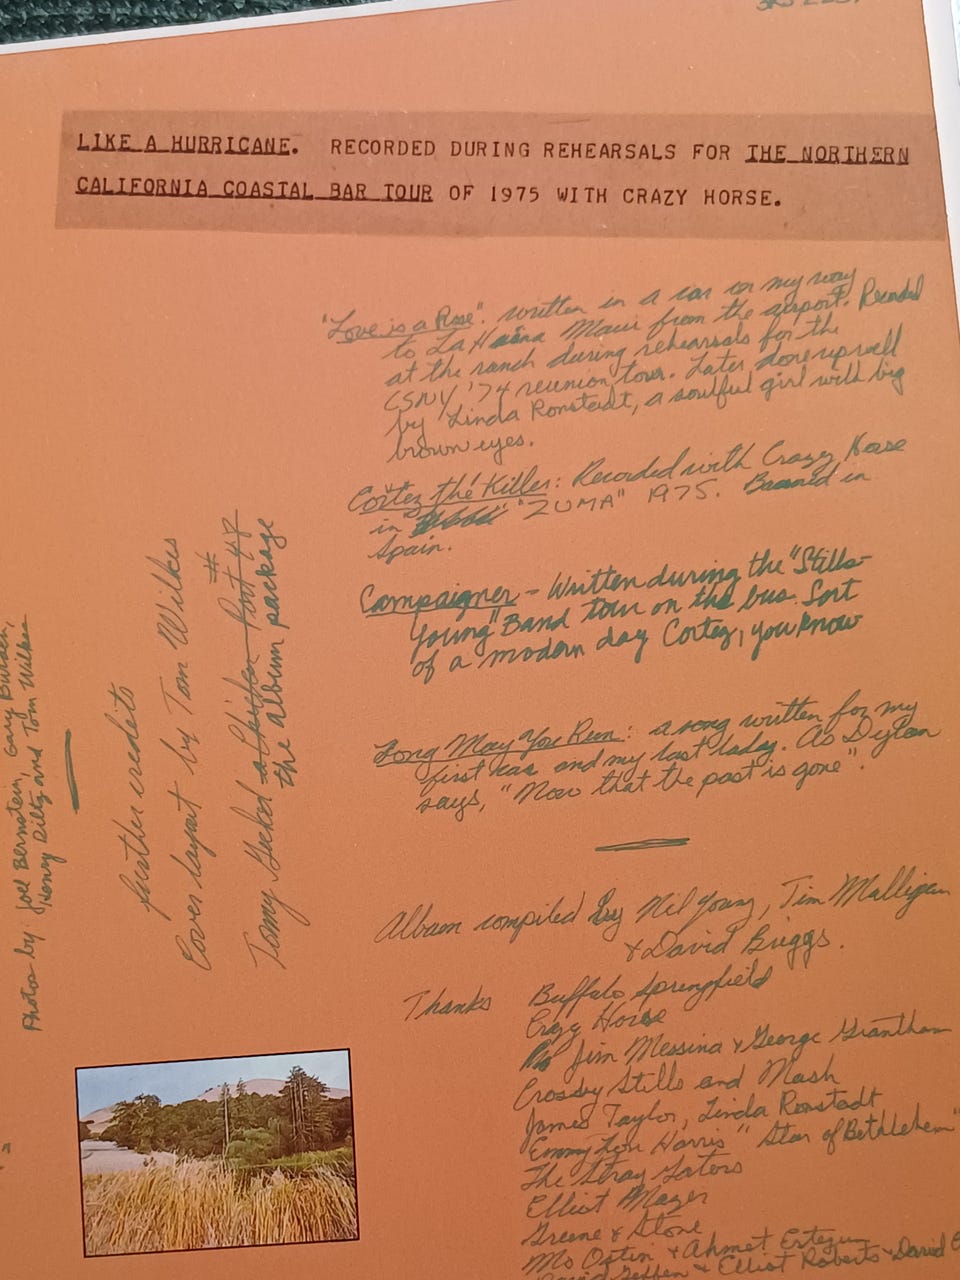 LIKE A HURRICANE. RECORDED DURING REHEARSALS FOR THE NORTHERN
CALIFORNIA COASTAL BAR TOUR OF 1975 WITH CRAZY HORSE.
"Love is a Rose". written in a car on my way
to La Haina Maui from the airport. Recorded
at the ranch during rehearsals for the
CSNY '74 reunion tour. Later done up well
by Linda Ronstadt, a soulful girl with big
brown eyes.
Cortez the Killer: Recorded with Crazy Horse
in "ZUMA" 1975. Banned in
Spain.
Campaigner - Written during the "Stills-
Young" Band tour on the bus. Sort
of a modern day Cortez, you know
Long May You Run: a song written for my
first car and my last lady. As Dylan
says, "Now that the past is gone".
Album compiled by Neil Young, Tim Mulligan
& David Briggs.
Thanks Buffalo Springfield
Crazy Horse
Jim Messina & George Grantham
Crosby Stills and Nash
James Taylor, Linda Ronstadt
Emmy Lou Harris "Star of Bethlehem"
The Stray Gators
Elliot Mazer
Greene & Stone
Mo Ostin & Ahmet Ertegun
David Geffen & Elliot Roberts & David
further credits
Cover layout by Tom Wilkes
Tommy
the album package
Photos by: Joel Bernstein, Gary Burden,
Henry Diltz and Tom Wilkes